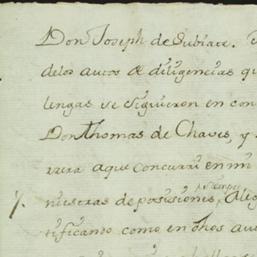 Don Joseph de Subiarr.
delos autos & diligencias qu
lengas se siguieron en con
Don thomas de Chaves, y
vara aque concurri en mi
nuestras deposisiones, Aleg
tificando como en dhos au